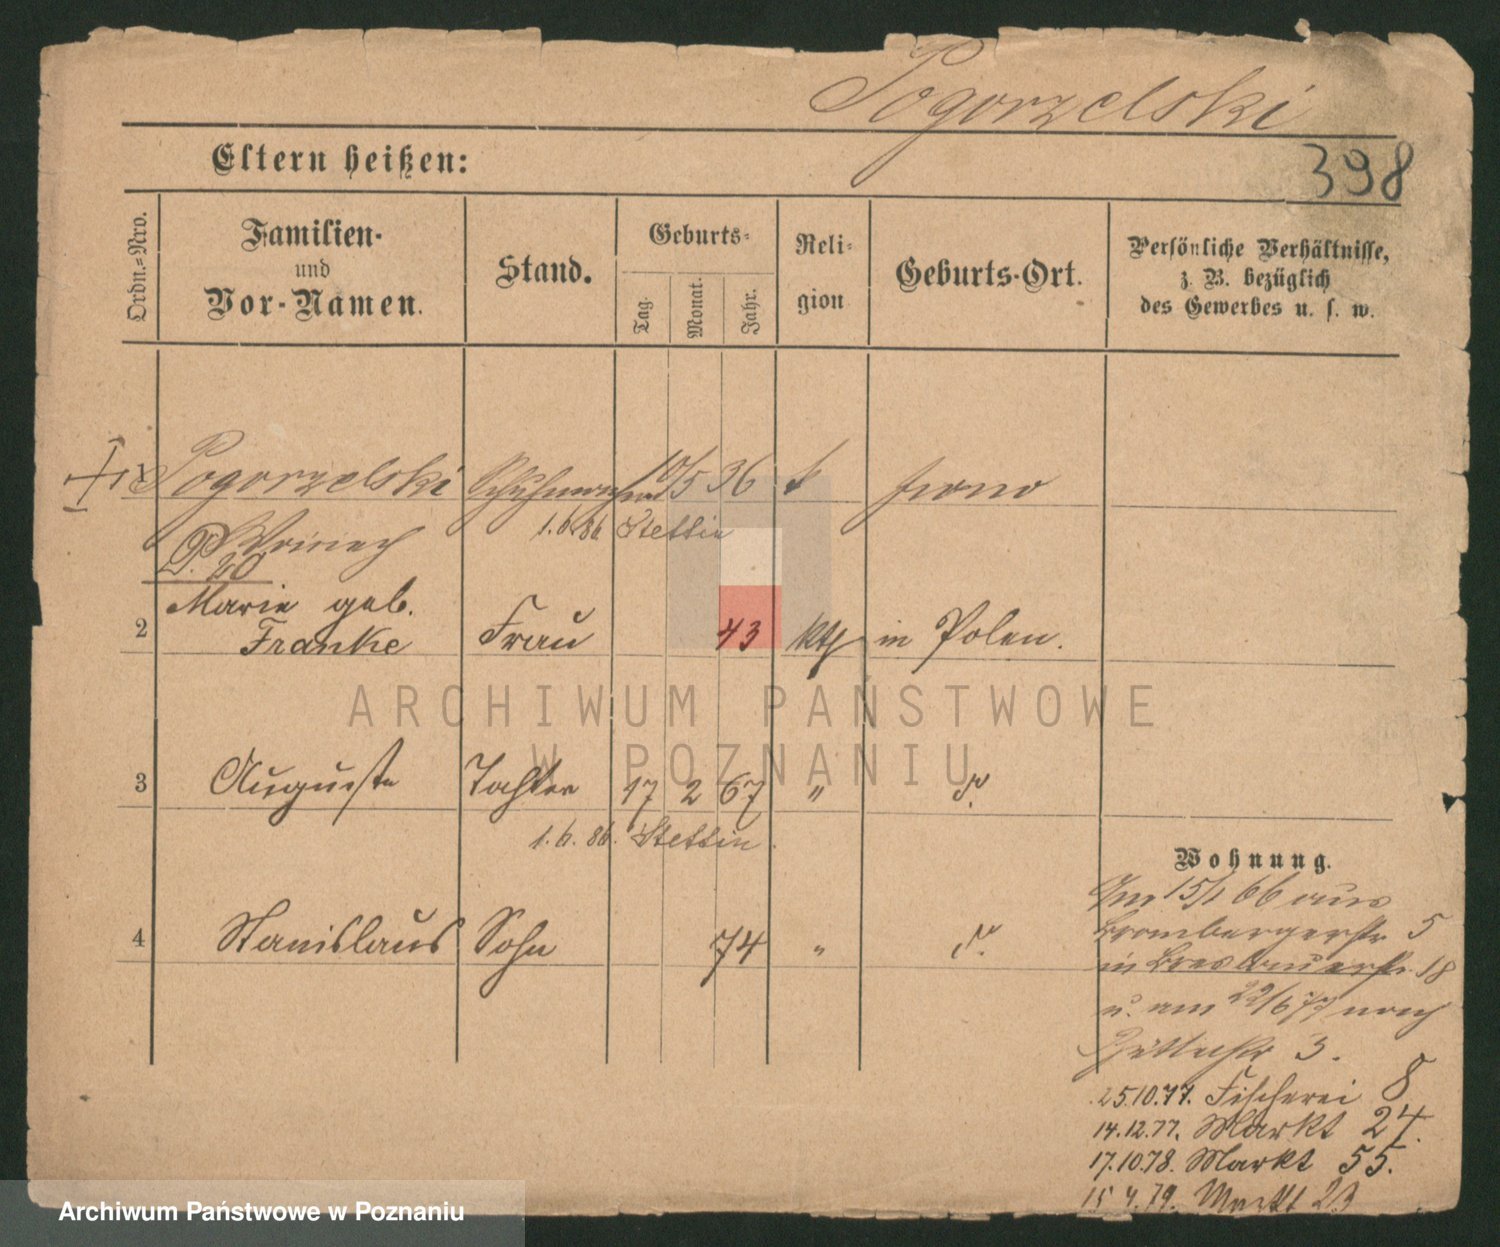 Pogorzelski
398
Eltern heißen:
Ordn.-Nro.
Familien-
und
Vor-Namen.
Stand.
Geburts-
Tag.
Monat.
Jahr.
Reli-
gion
Geburts-Ort.
Persönliche Verhältnisse,
z. B. bezüglich
des Gewerbes u. s. w.
1 Pogorzelski Schuhmacher 10/5 36 k
1.6.86 Stettin
P. 20
Marie geb.
2 Franke Frau 43 kth in Polen.
ARCHIWUM PAŃSTWOWE
W POZNANIU
3 Auguste Tochter 17 2 67 "
1.6.86. Stettin.
Wohnung.
4 Stanislaus Sohn 74 "
Am 15/1 66 aus
Brombergerstr 5
in Breslauerstr. 18
u. am 22/6 77 nach
3.
25.10.77. Fischerei 8
14.12.77. Markt 24.
17.10.78. Markt 55.
15 4.79. Markt 23
Archiwum Państwowe w Poznaniu